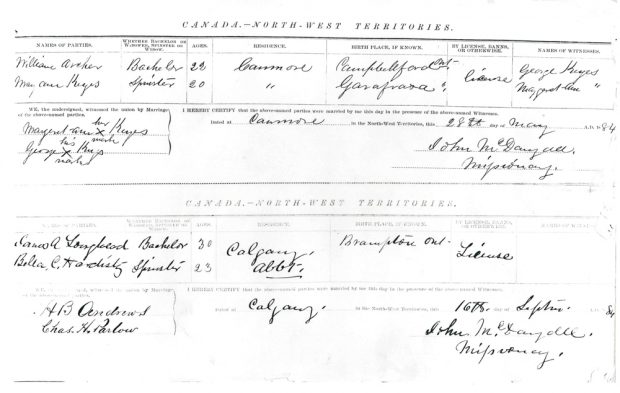 CANADA.—NORTH-WEST TERRITORIES.
NAMES OF PARTIES. WHETHER BACHELOR OR WIDOWER, SPINSTER OR WIDOW. AGES. RESIDENCE. BIRTH PLACE, IF KNOWN. BY LICENSE, BANNS, OR OTHERWISE. NAMES OF WITNESSES.
William Archer Bachelor 22 Canmore Campbellford Ont License George Keyes
May Ann Keyes Spinster 20 " Garafraxa " Margaret Ann "
WE, the undersigned, witnessed the union by Marriage of the above-named parties.
I HEREBY CERTIFY that the above-named parties were married by me this day in the presence of the above Witnesses.
Margaret Ann her X mark Keyes
George his X mark Keys
Dated at Canmore in the North-West Territories, this 28th day of May A.D. 1884
John McDougall.
Missionary.
CANADA.—NORTH-WEST TERRITORIES.
NAMES OF PARTIES. WHETHER BACHELOR OR WIDOWER, SPINSTER OR WIDOW. AGES. RESIDENCE. BIRTH PLACE, IF KNOWN. BY LICENSE, BANNS, OR OTHERWISE. NAMES OF WITNESSES.
James A Lougheed Bachelor 30 Calgary. Brampton Ont. License
Bella C. Hardisty Spinster 23 Abbt.
WE, the undersigned, witnessed the union by Marriage of the above-named parties.
I HEREBY CERTIFY that the above-named parties were married by me this day in the presence of the above Witnesses.
A B Andrews
Chas. H. Parlow
Dated at Calgary. in the North-West Territories, this 16th. day of Septm. A.D. 84
John McDougall.
Missionary.